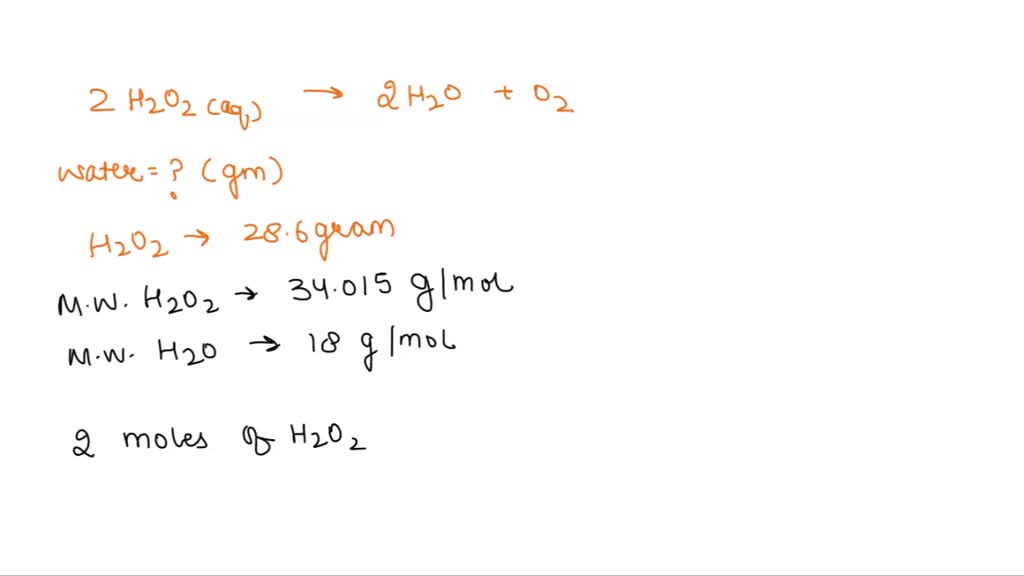 2 H2O2 (aq) → 2H2O + O2
water = ? (gm)
H2O2 → 28.6 gram
M.W. H2O2 → 34.015 g/mol
M.W. H2O → 18 g/mol
2 moles of H2O2